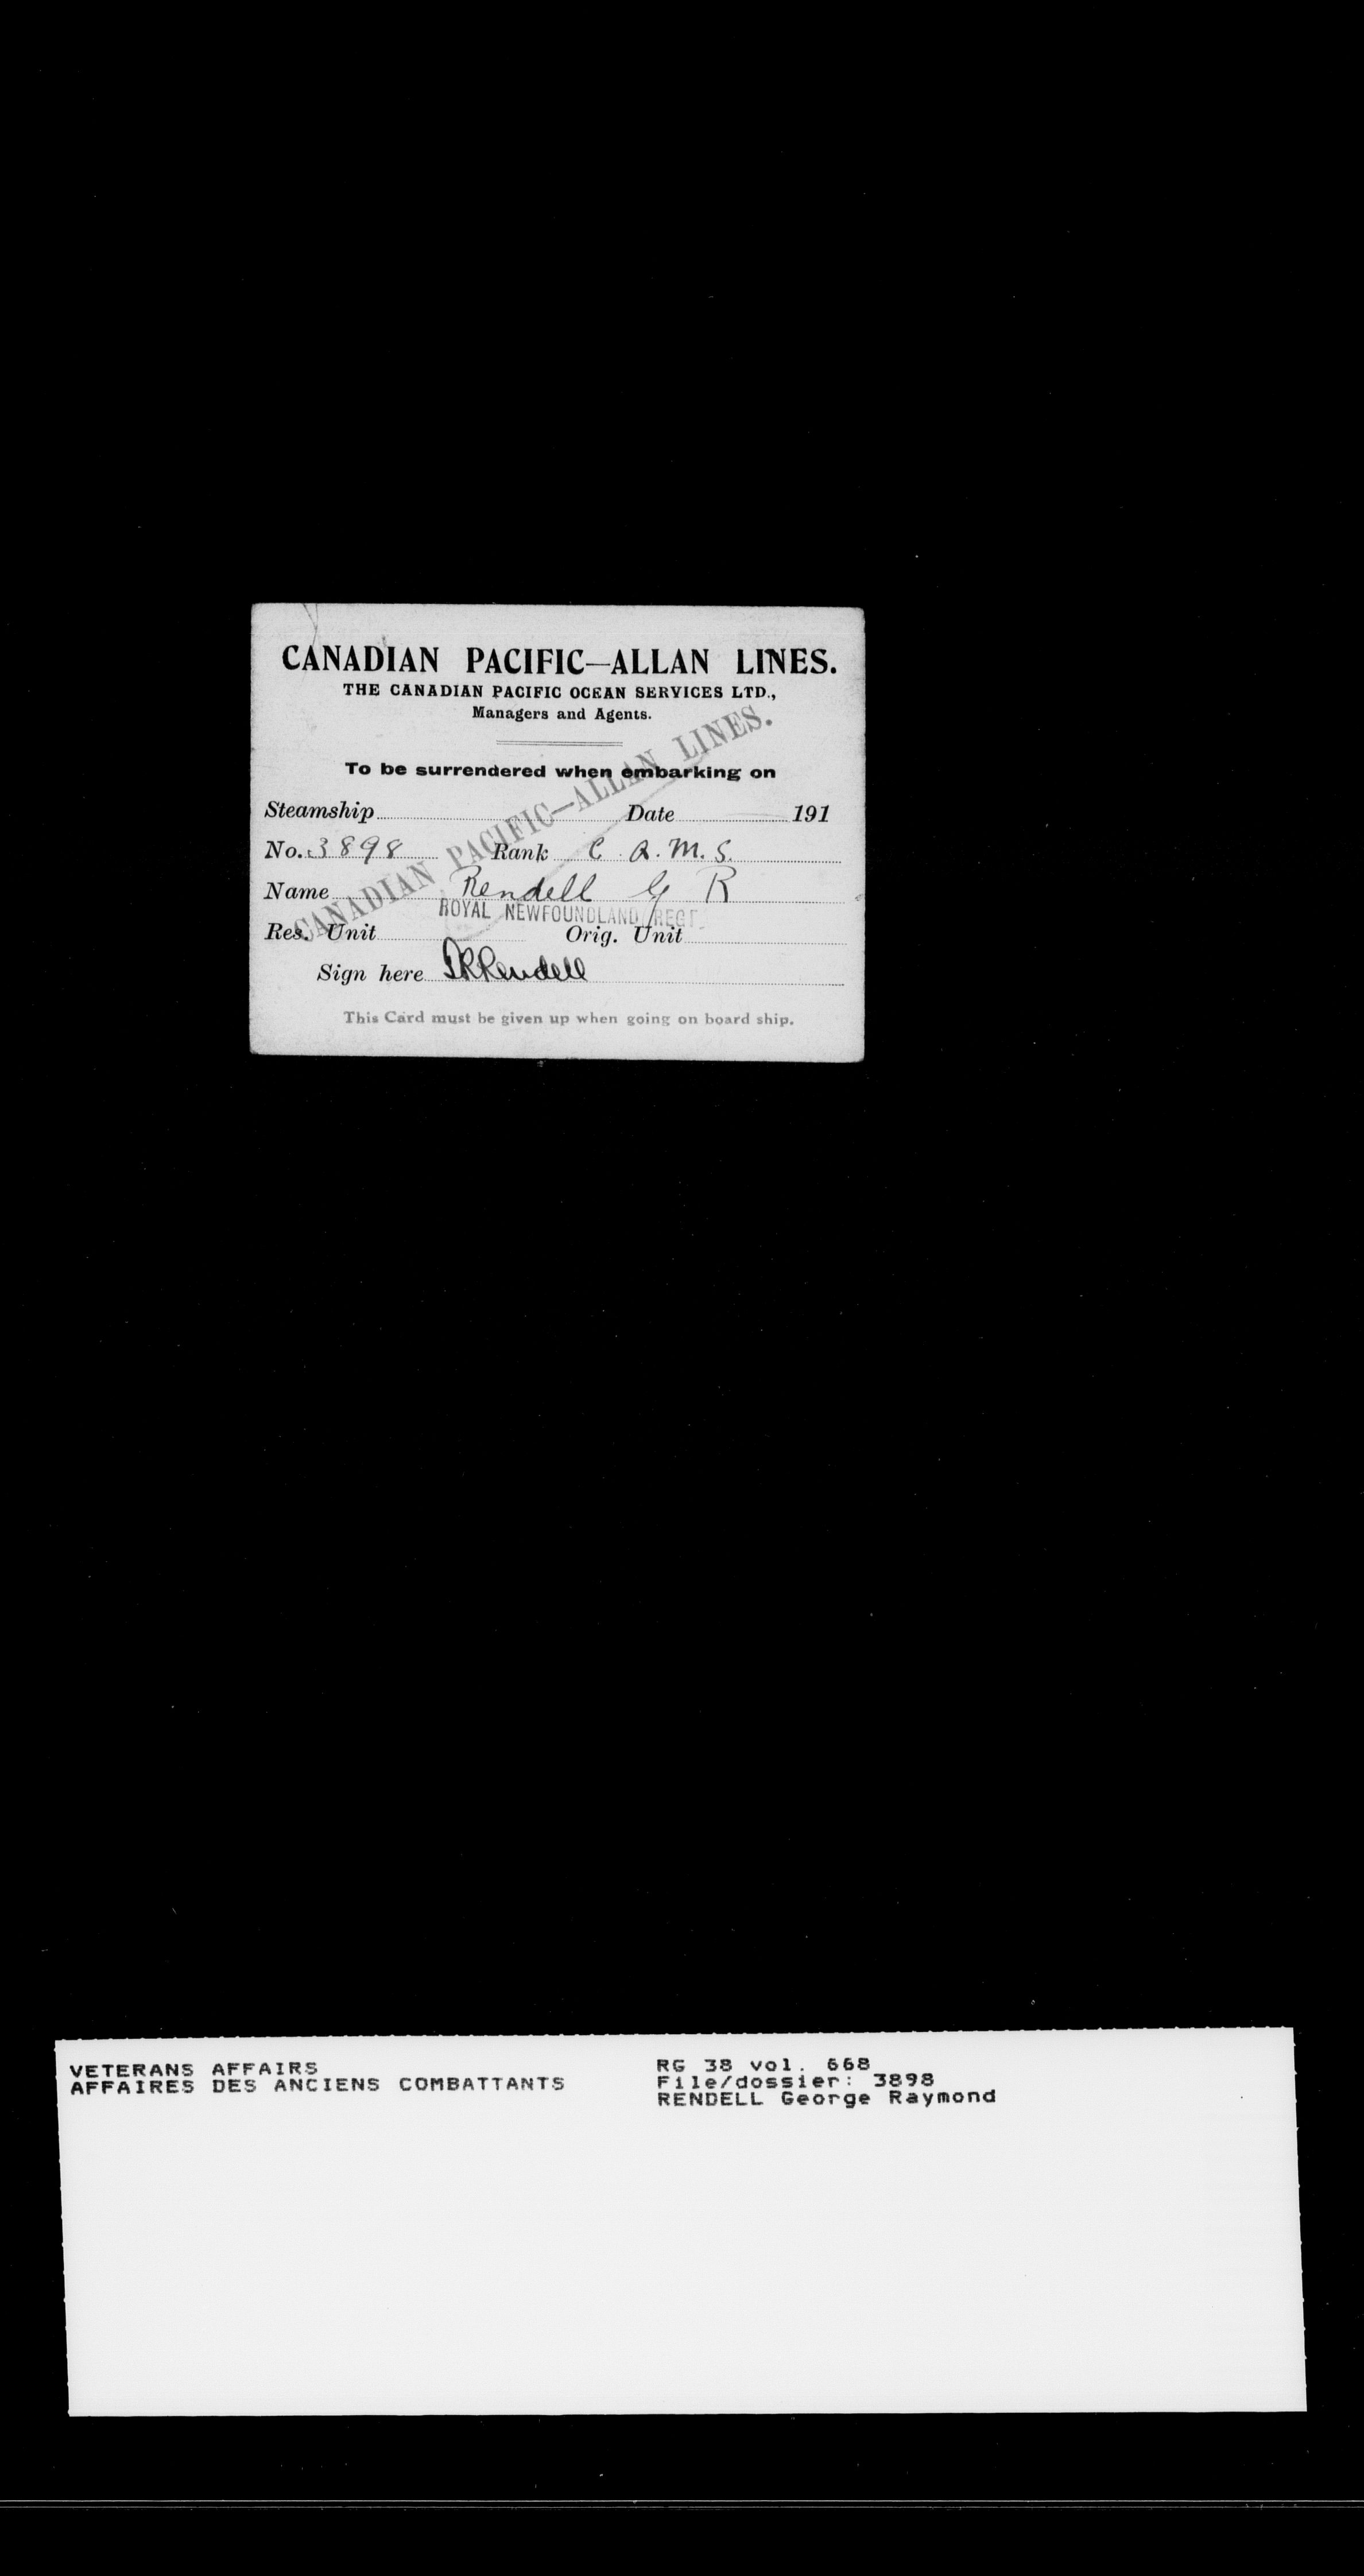 CANADIAN PACIFIC—ALLAN LINES.
THE CANADIAN PACIFIC OCEAN SERVICES LTD.,
Managers and Agents.
CANADIAN PACIFIC—ALLAN LINES.
To be surrendered when embarking on
Steamship Date 191
No. 3898 Rank C Q.M.S.
Name Rendell G R
ROYAL NEWFOUNDLAND REGT
Res. Unit Orig. Unit
Sign here GRRendell
This Card must be given up when going on board ship.
VETERANS AFFAIRS
AFFAIRES DES ANCIENS COMBATTANTS
RG 38 vol. 668
File/dossier: 3898
RENDELL George Raymond